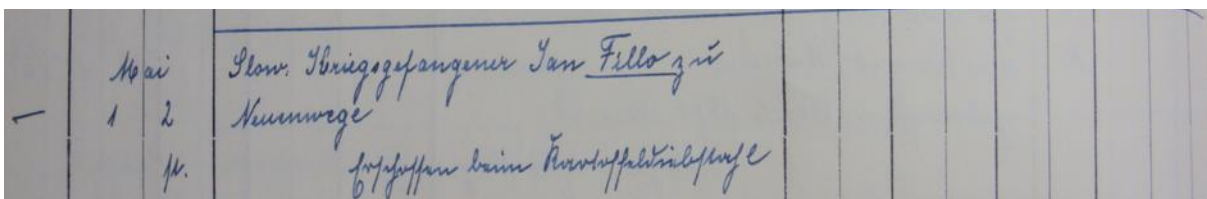 Mai Slow. Kriegsgefangener Jan Fillo zu
1 2 Neuenwege
st. Erschossen beim Kartoffeldiebstahl